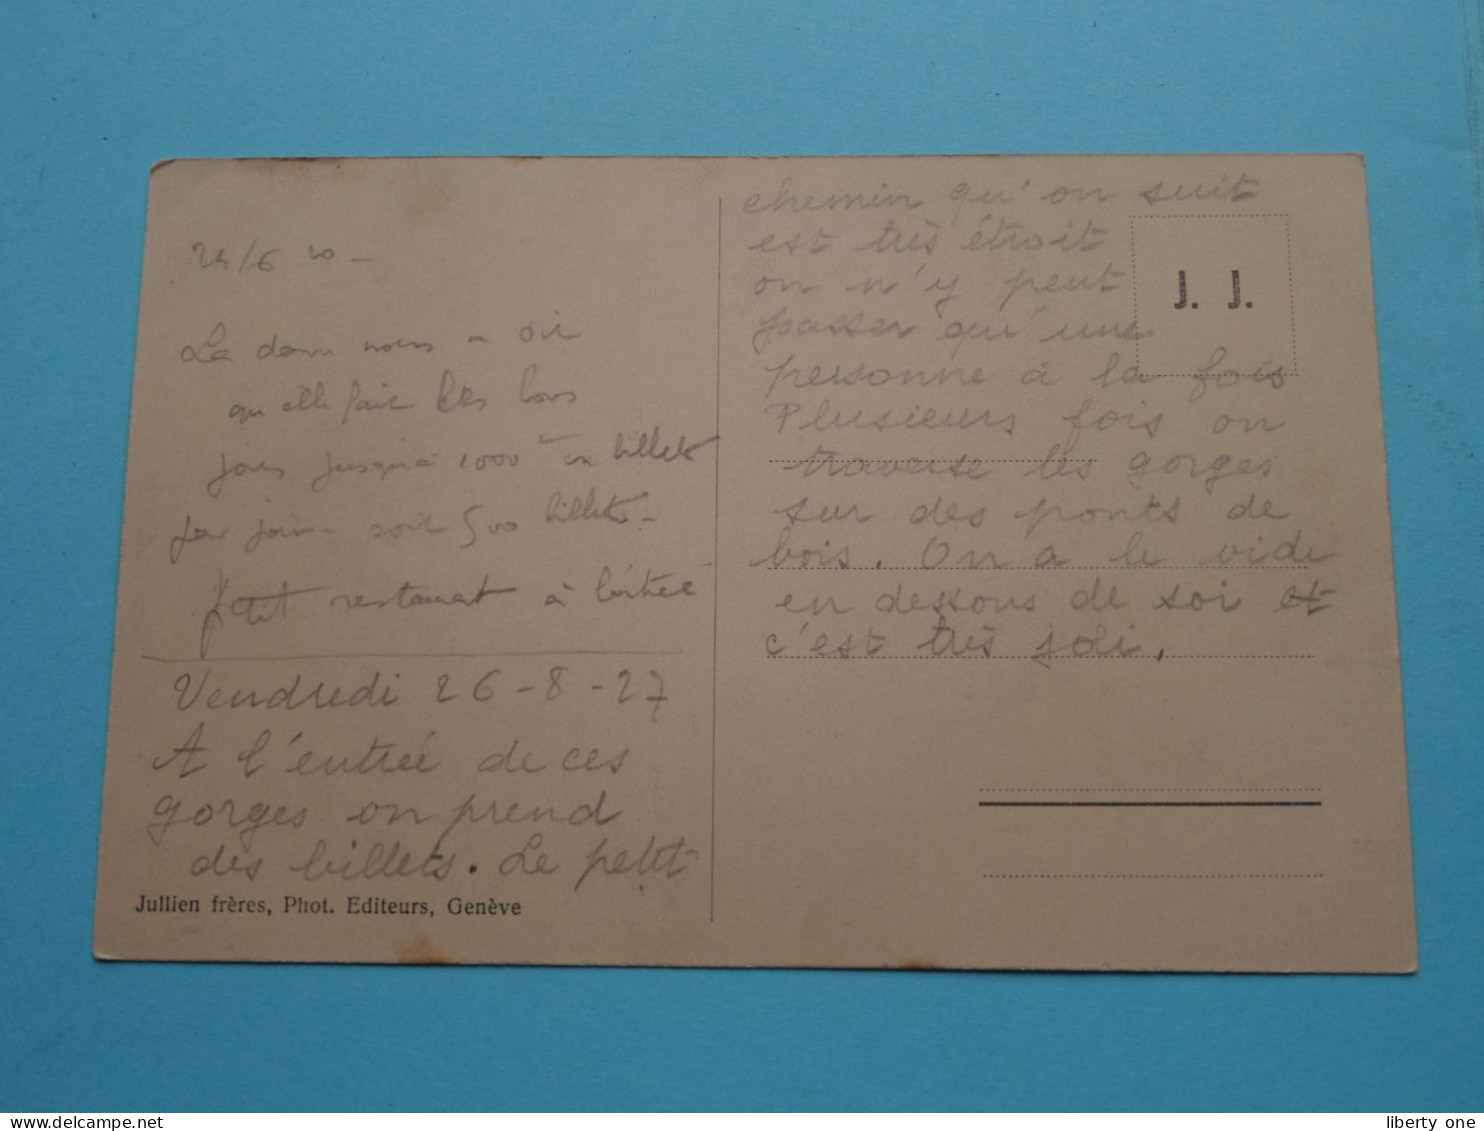 24/6 20 -
La dame nous a dit
qu'elle fait les bons
jours jusqu'à 1000 billets
par jour - soit 500 billets -
Petit restaurant à l'entrée
Vendredi 26-8-27
A l'entrée de ces
gorges on prend
des billets. Le petit
Jullien frères, Phot. Editeurs, Genève
chemin qu'on suit
est très étroit
on n'y peut
passer qu'une
personne à la fois
Plusieurs fois on
traverse les gorges
sur des ponts de
bois. On a le vide
en dessous de soi et
c'est très joli.
J. J.
liberty one